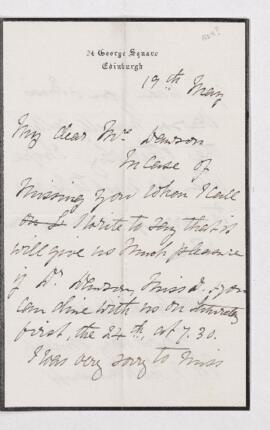 24 George Square
Edinburgh
19th May
My dear Mrs Dawson
In case of
missing you when I call
I write to say that it
will give us much pleasure
if Dr Dawson, Miss D. & you
can dine with us on
first, the 24th, at 7.30.
I was very sorry to miss